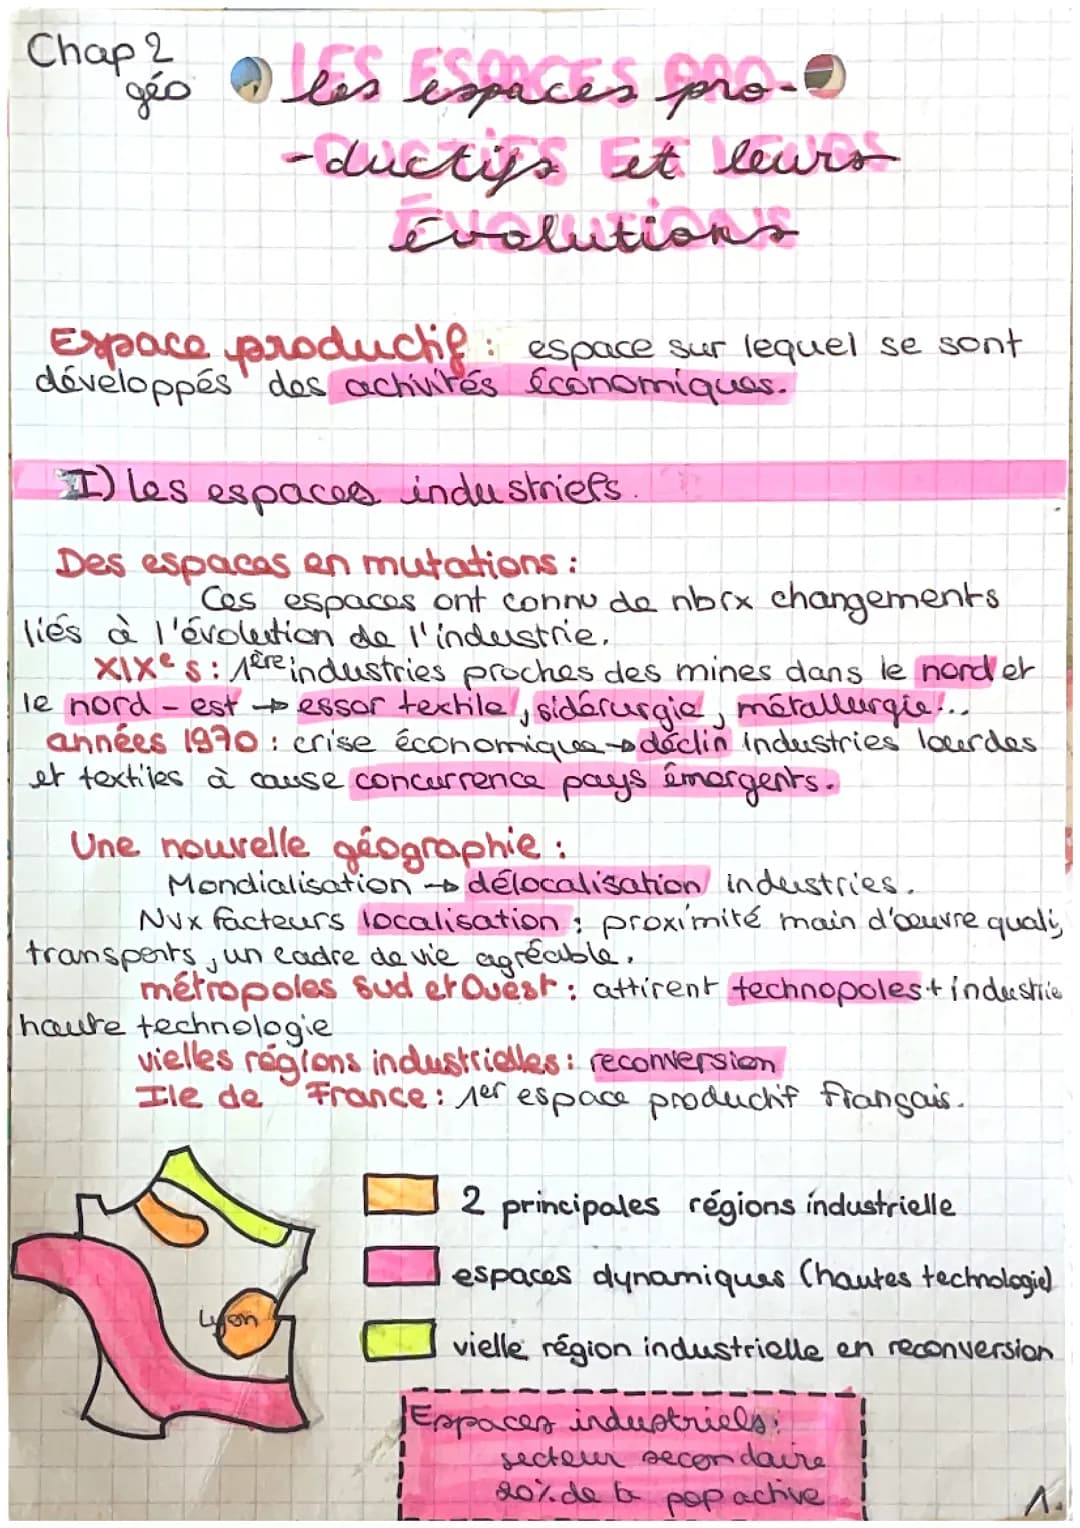 Chap 2
géo
les espaces pro-
-ductifs Et leurs
évolutions
Espace productif : espace sur lequel se sont
développés des activités économiques.
I) les espaces industriels.
Des espaces en mutations :
Ces espaces ont connu de nbrx changements
liés à l'évolution de l'industrie.
XIXe s : 1ère industries proches des mines dans le nord et
le nord - est → essor textile, sidérurgie, métallurgie...
années 1970 : crise économique → déclin industries lourdes
et textiles à cause concurrence pays émergents.
Une nouvelle géographie :
Mondialisation → délocalisation industries.
Nvx facteurs localisation : proximité main d'œuvre quali,
transports, un cadre de vie agréable.
métropoles Sud et Ouest : attirent technopoles + industrie
haute technologie
vielles régions industrielles : reconversion
Ile de France : 1er espace productif français.
2 principales régions industrielle
espaces dynamiques (hautes technologie)
Lyon
vielle région industrielle en reconversion
Espaces industriels :
secteur secondaire
20% de la pop active
1.